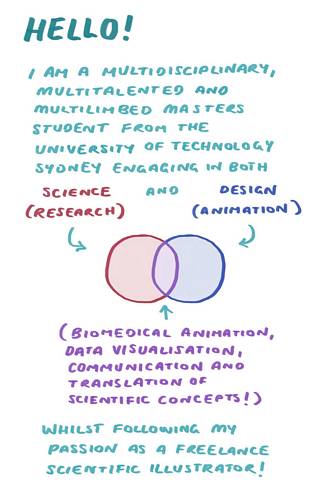 HELLO!
I AM A MULTIDISCIPLINARY,
MULTITALENTED AND
MULTILIMBED MASTERS
STUDENT FROM THE
UNIVERSITY OF TECHNOLOGY
SYDNEY ENGAGING IN BOTH
SCIENCE AND DESIGN
(RESEARCH) (ANIMATION)
(BIOMEDICAL ANIMATION,
DATA VISUALISATION,
COMMUNICATION AND
TRANSLATION OF
SCIENTIFIC CONCEPTS!)
WHILST FOLLOWING MY
PASSION AS A FREELANCE
SCIENTIFIC ILLUSTRATOR!